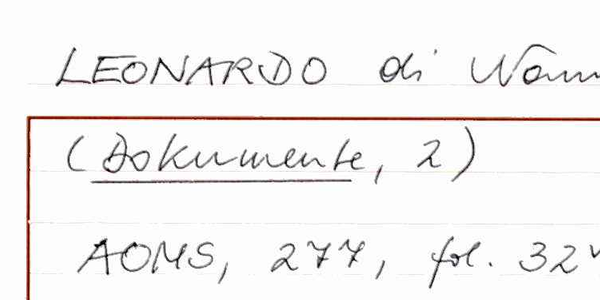 LEONARDO di Nann
(Dokumente, 2)
AOMS, 277, fol. 32v